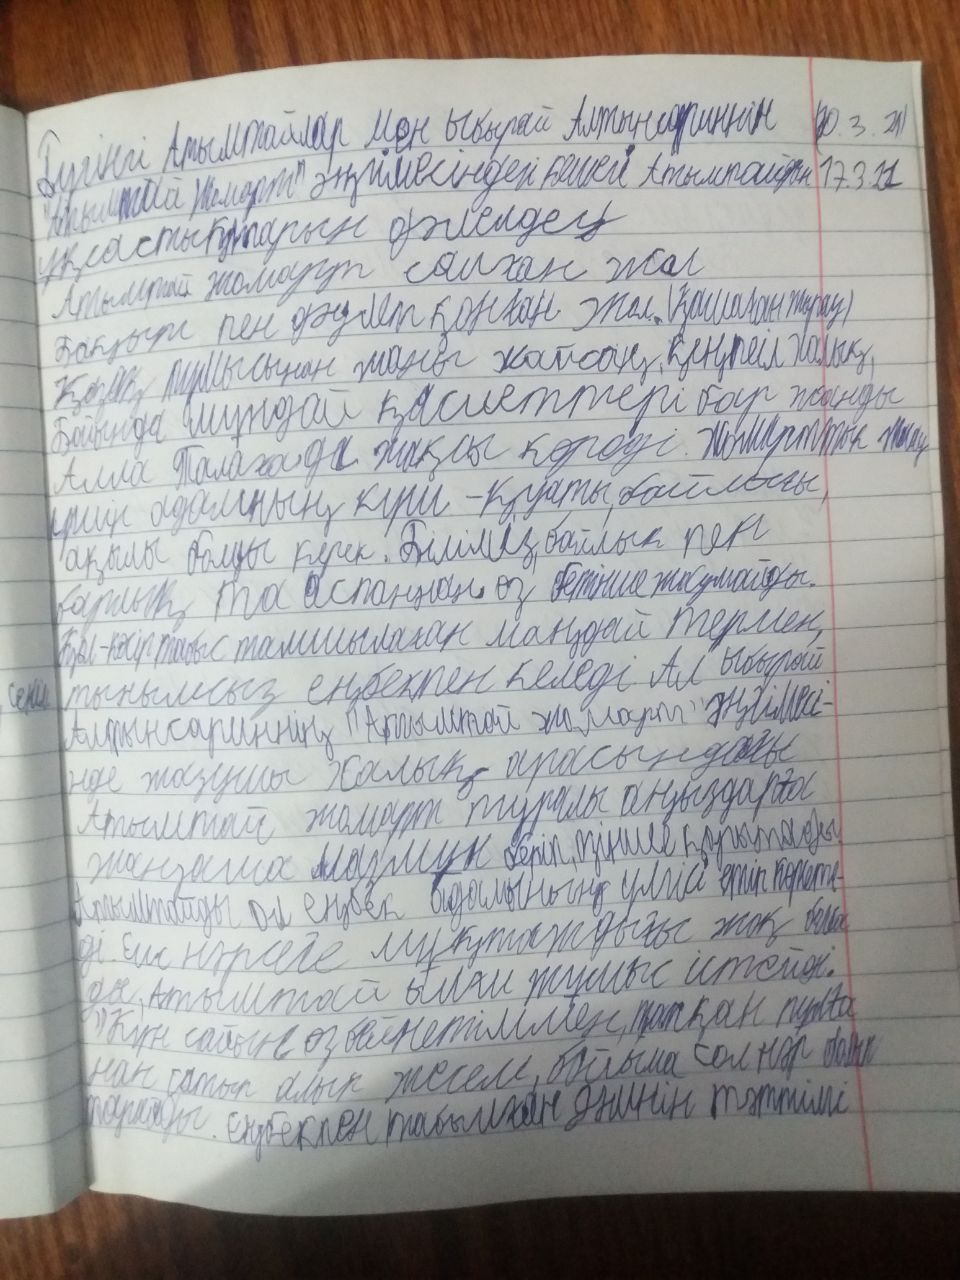 Бүгінгі Атымтайлар мен Ыбырай Алтынсариннің 20.3.21
"Атымтай Жомарт" әңгімесіндегі кешегі Атымтайдың 17.3.21
ұқсастықтарын дәлелдеу
Атымтай жомарт салған жол
Бақыт пен дәулет қонған жол.
Қазақ тумысынан жаны жайсаң, кең пейіл халық,
Бойында мұндай қасиеттері бар жанды
Алла Тағала да жақсы көреді. Жомарттық жасау
үшін адамның күш-қуаты, байлығы,
ақылы болуы керек. Білімің, байлық пен
барлық та аспаннан өз бетінше жаумайды.
Бұл-кәсіп табыс тамшылаған маңдай термен,
тынымсыз еңбекпен келеді Ал Ыбырай
Алтынсариннің "Атымтай жомарт" әңгімесі-
нде жазушы халық арасындағы
Атымтай жомарт туралы аңыздарға
жаңаша мазмұн беріп, түйінше қорытады.
Атымтайды ол еңбек адамының үлгісі етіп көрсете-
ді. Еш нәрсеге мұқтаждығы жоқ болса
да, Атымтай ылғи жұмыс істейді.
"Күн сайын өз бейнетіммен, тапқан пұлға
нан сатып алып жесем, бойыма сол нәр болып
таралады. Еңбекпен табылған дәннің тәттілігі